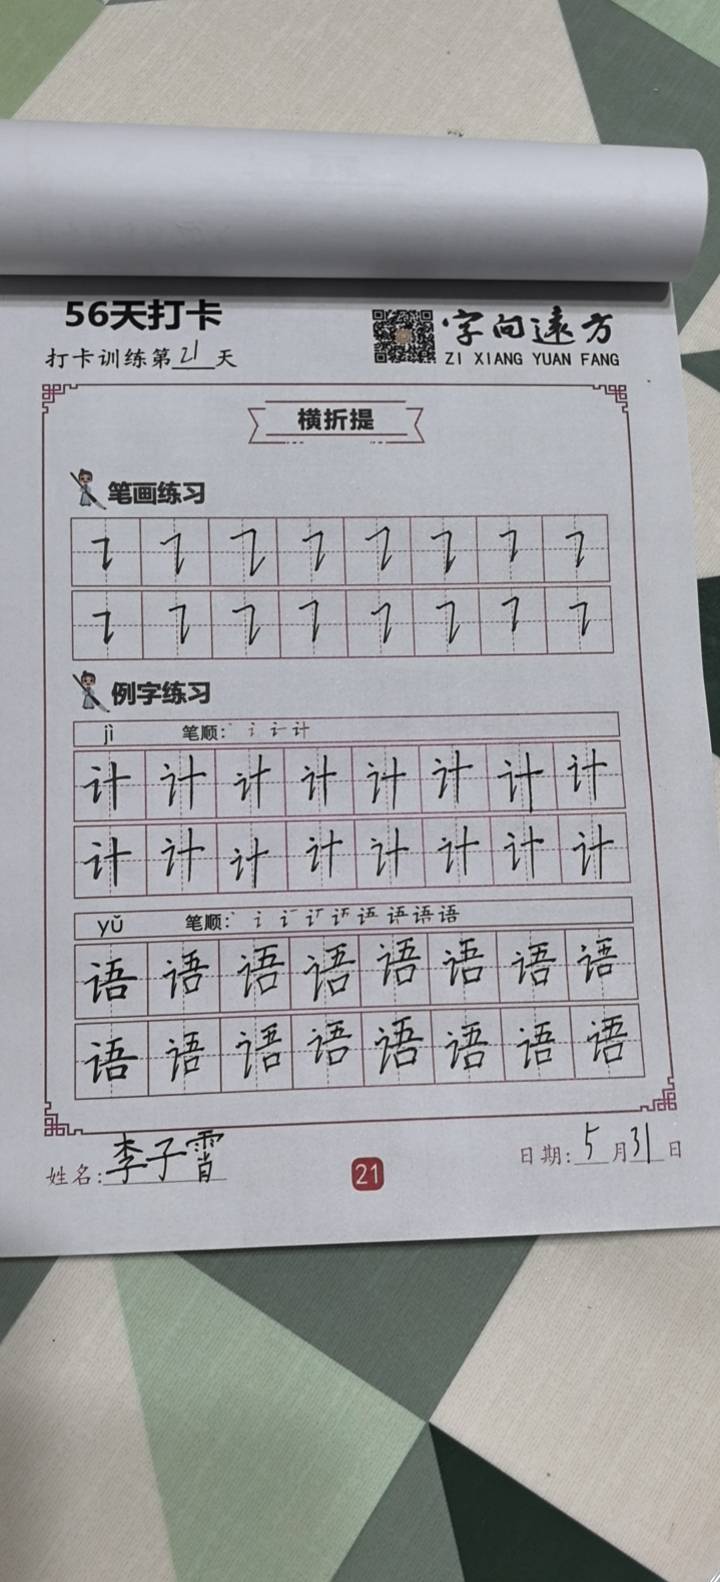 56天打卡
字向遠方
打卡训练第21天
ZI XIANG YUAN FANG
横折提
笔画练习
例字练习
jì 笔顺:
计 计 计 计 计 计 计 计
计 计 计 计 计 计 计 计
yǔ 笔顺:
语 语 语 语 语 语 语 语
语 语 语 语 语 语 语 语
姓名:李子霄
21
日期:5月31日